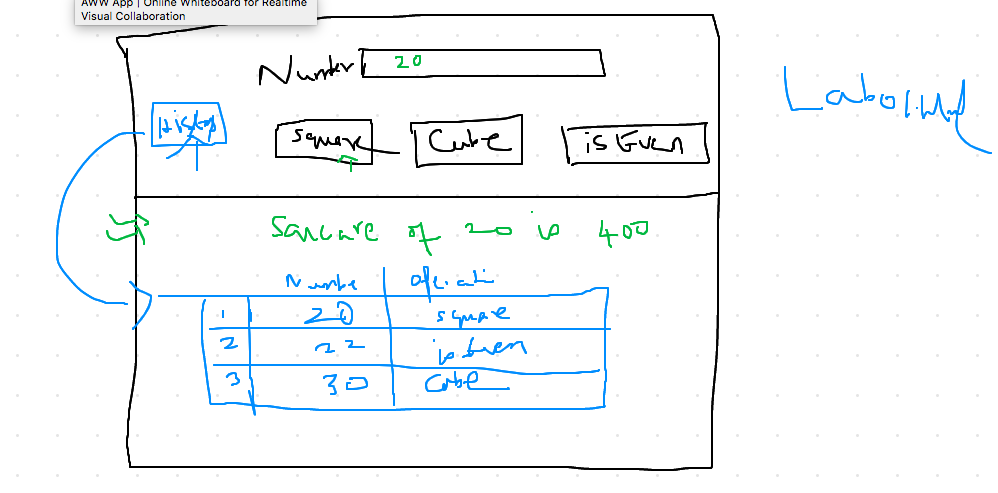 AWW App | Online Whiteboard for Realtime
Visual Collaboration
Number 20
History
Square Cube isEven
Sqaure of 20 is 400
Number operation
1 20 square
2 22 isEven
3 30 Cube